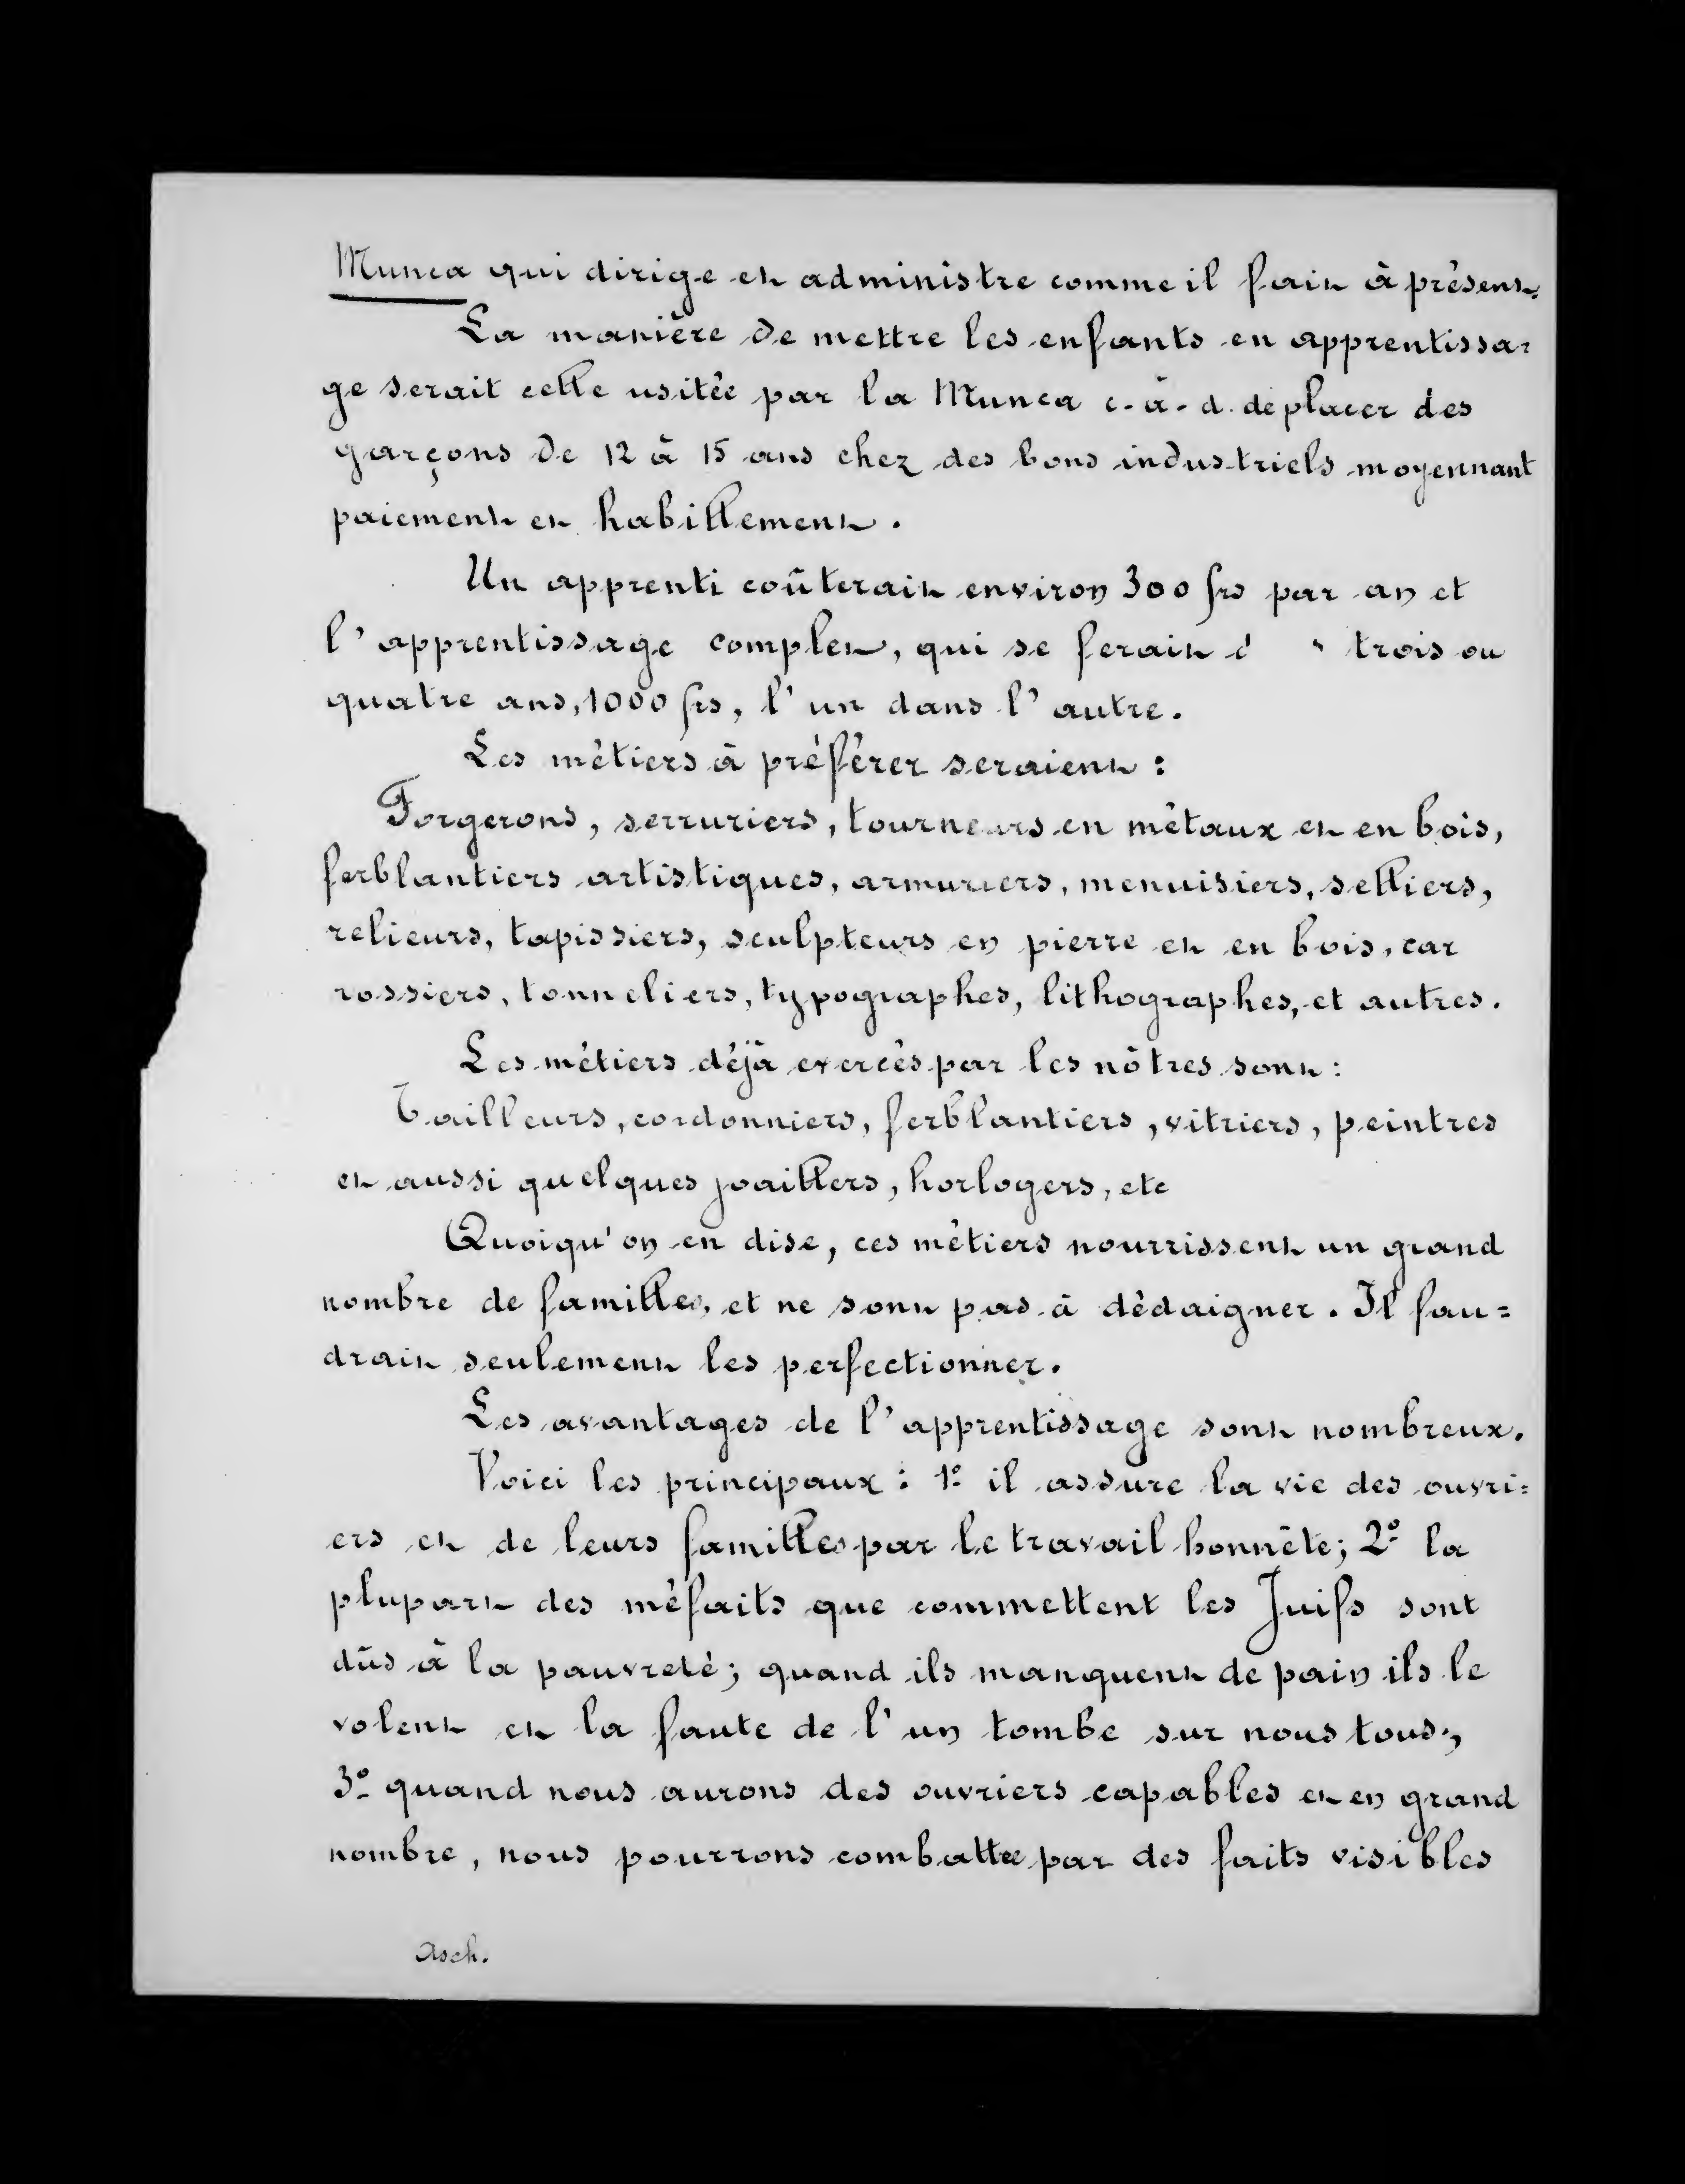 Munca qui dirige et administre comme il fait à présent.
La manière de mettre les enfants en apprentissa=
ge serait celle usitée par la Munca c.-à-d. de placer des
garçons de 12 à 15 ans chez des bons industriels moyennant
paiement et habillement.
Un apprenti coûterait environ 300 frs par an et
l'apprentissage complet, qui se ferait trois ou
quatre ans, 1000 frs, l'un dans l'autre.
Les métiers à préférer seraient :
Forgerons, serruriers, tourneurs en métaux et en bois,
ferblantiers artistiques, armuriers, menuisiers, selliers,
relieurs, tapissiers, sculpteurs en pierre et en bois, car
rossiers, tonneliers, typographes, lithographes, et autres.
Les métiers déjà exercés par les nôtres sont :
Tailleurs, cordonniers, ferblantiers, vitriers, peintres
et aussi quelques joaillers, horlogers, etc
Quoiqu'on en dise, ces métiers nourrissent un grand
nombre de familles, et ne sont pas à dédaigner. Il fau=
drait seulement les perfectionner.
Les avantages de l'apprentissage sont nombreux.
Voici les principaux : 1º il assure la vie des ouvri=
ers et de leurs familles par le travail honnête; 2º la
plupart des méfaits que commettent les Juifs sont
dûs à la pauvreté; quand ils manquent de pain ils le
volent et la faute de l'un tombe sur nous tous;
3º quand nous aurons des ouvriers capables et en grand
nombre, nous pourrons combattre par des faits visibles
Asch.